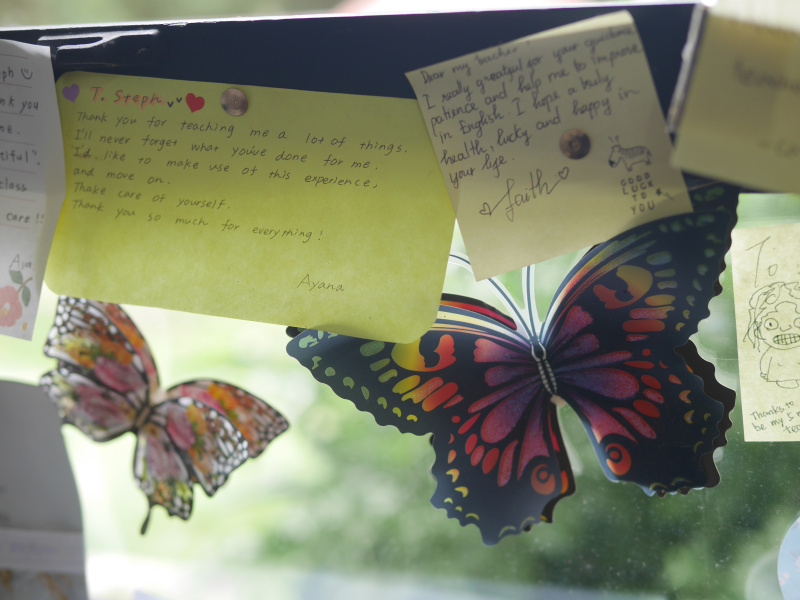 ph
nk you
me.
tiful".
class
care !!
Aya
T. Steph
Thank you for teaching me a lot of things.
I'll never forget what you've done for me.
I'd like to make use of this experience,
and move on.
Thake care of yourself.
Thank you so much for everything!
Ayana
Dear my teacher
I really grateful for your guidance,
patience and help me to improve
in English. I hope a truly
health, lucky and happy in
your life.
faith
GOOD
LUCK
TO
YOU
To
Thanks to
be my 5 m
tea